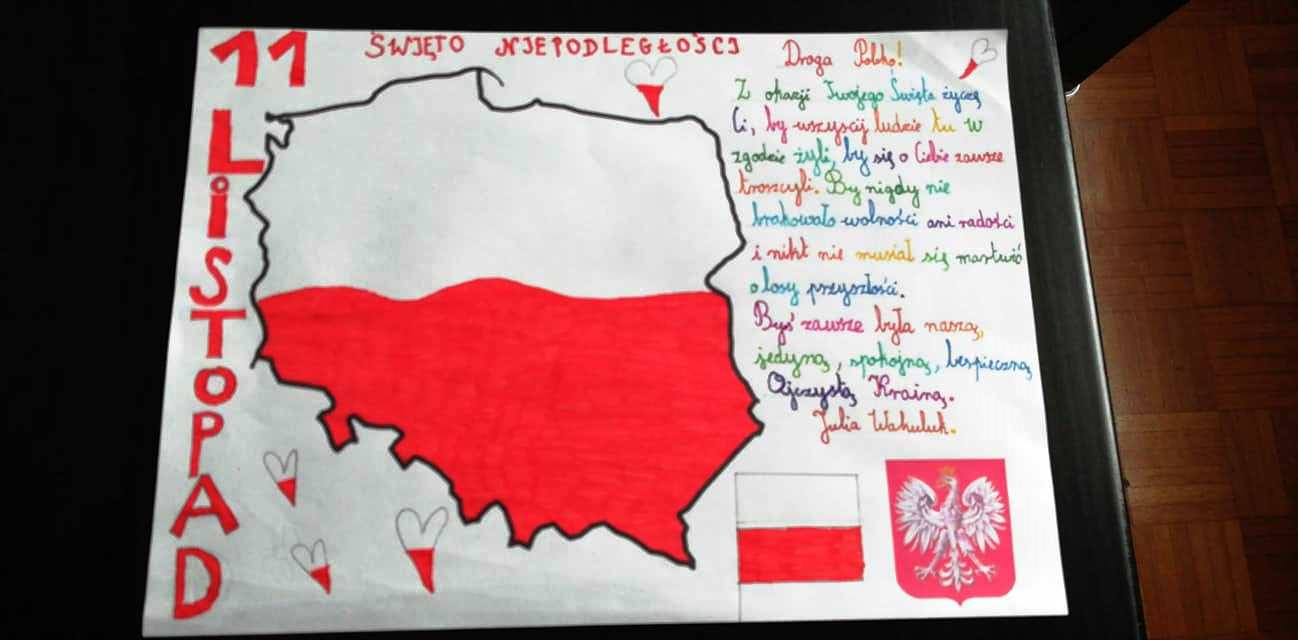 11
LiSTOPAD
ŚWIĘTO NIEPODLEGŁOŚCI
Droga Polsko!
Z okazji Twojego Święta życzę
Ci, by wszyscy ludzie tu w
zgodzie żyli, by się o Ciebie zawsze
troszczyli. By nigdy nie
brakowało wolności ani radości
i nikt nie musiał się martwić
o losy przyszłości.
Byś zawsze była naszą,
jedyną, spokojną, bezpieczną
Ojczystą Krainą.
Julia Wakuluk.